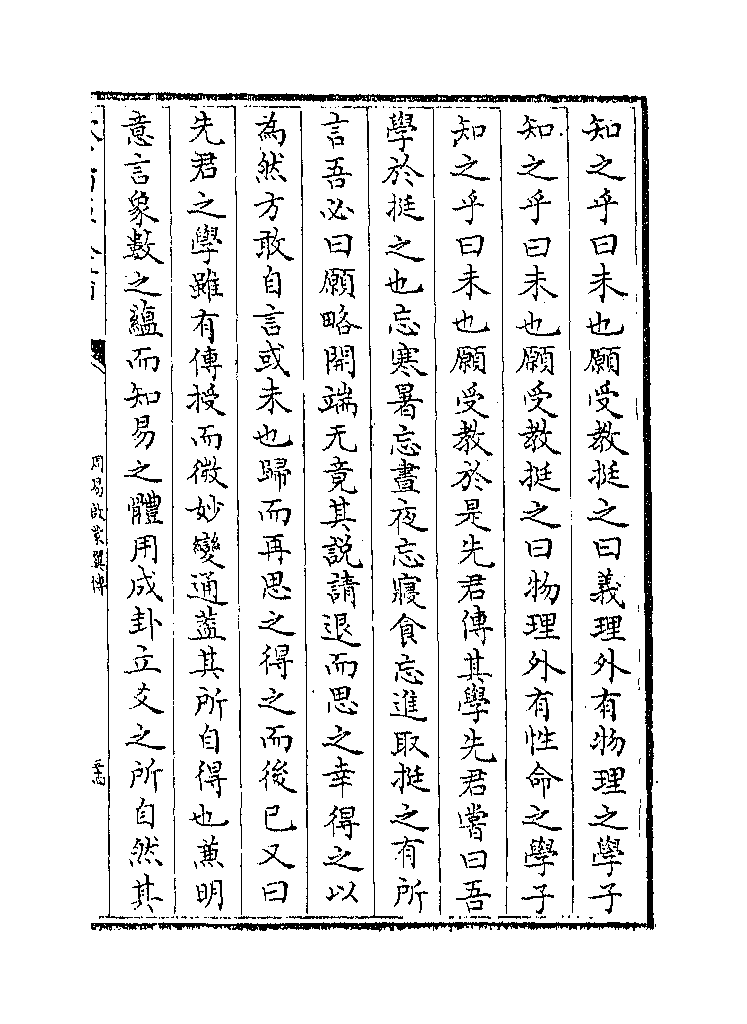 知之乎曰未也願受教挺之曰義理外有物理之學子
知之乎曰未也願受教挺之曰物理外有性命之學子
知之乎曰未也願受教於是先君傳其學先君嘗曰吾
學於挺之也忘寒暑忘晝夜忘寢食忘進取挺之有所
言吾必曰願略開端无竟其説請退而思之幸得之以
為然方敢自言或未也歸而再思之得之而後已又曰
先君之學雖有傳授而微妙變通蓋其所自得也兼明
意言象數之蘊而知易之體用成卦立爻之所自然其
周易啟蒙翼傳